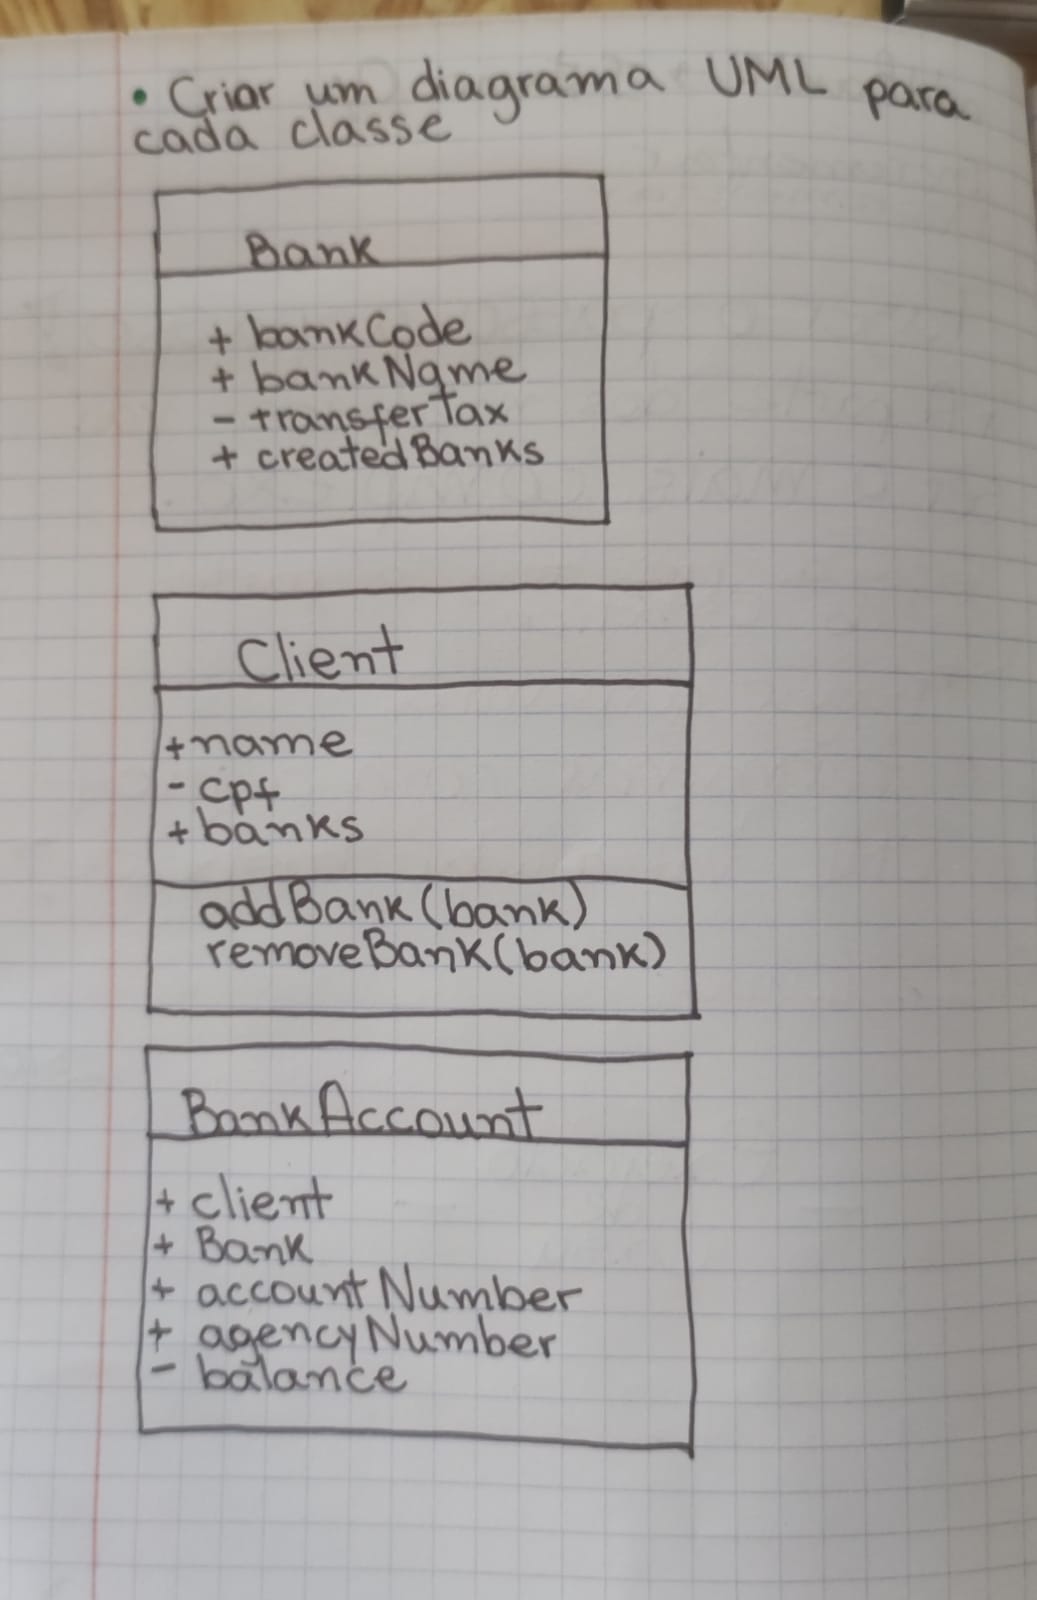 • Criar um diagrama UML para
cada classe
Bank
+ bankCode
+ bankName
- transferTax
+ createdBanks
Client
+name
- cpf
+ banks
addBank(bank)
removeBank(bank)
BankAccount
+ client
+ Bank
+ accountNumber
+ agencyNumber
- balance